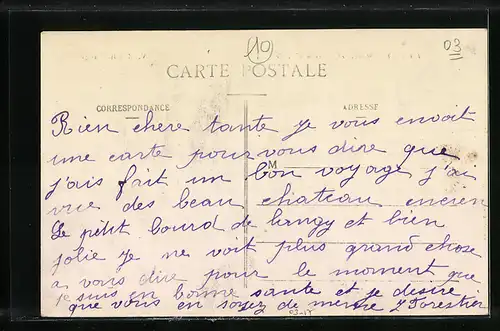 10
03
CARTE POSTALE
CORRESPONDANCE
ADRESSE
M
Bien chere tante je vous envoit
une carte pour vous dire que
j'ais fait un bon voyage j'ai
vue des beau chateau encien
Le petit bourd de langy et bien
jolie je ne voit plus grand chose
a vous dire pour le moment que
je suis en bonne sante et je desire
que vous en soyez de meme Forestier